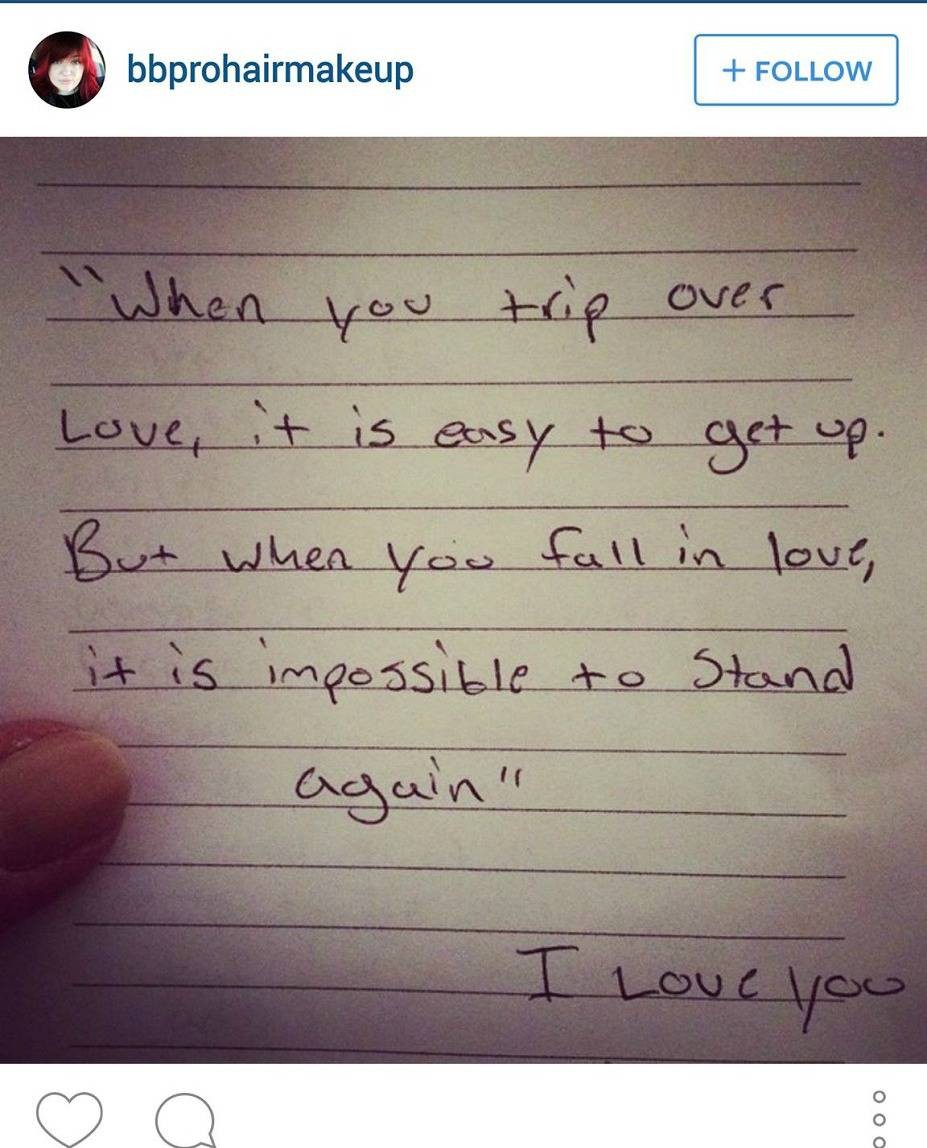 bbprohairmakeup
+ FOLLOW
"When you trip over
Love, it is easy to get up.
But when you fall in love,
it is impossible to Stand
again"
I Love you